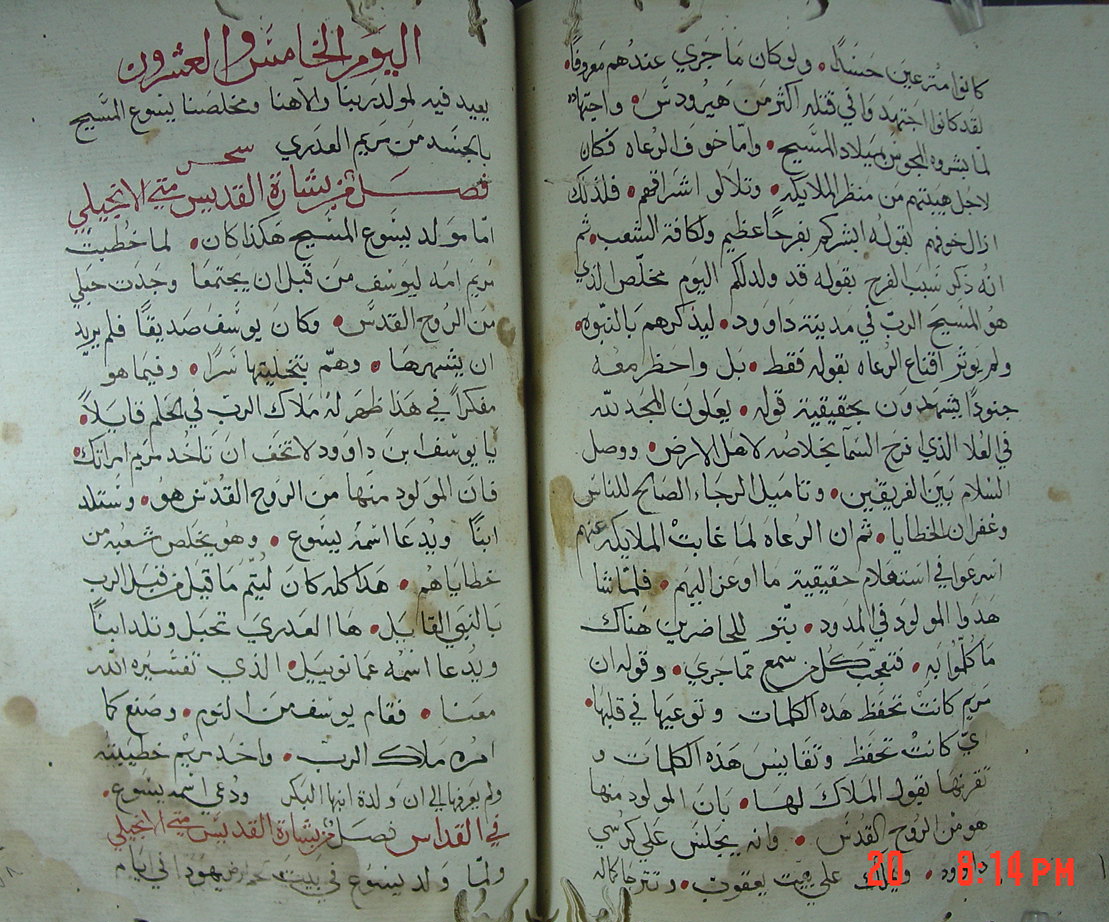 كانوا مترعين حسدًا. ولو كان ما جري عندهم معروفًا.
لقد كانوا اجتهدوا في قتله اكثر من هيرودس. واجتهاده
لما بشروه المجوس بميلاد المسيح. واما خوف الرعاه فكان
لاجل هيبتهم من منظر الملايكه. وتلالو اشراقهم. فلذلك
ازال خوفهم لقوله ابشركم بفرحًا عظيم ولكافة الشعب. ثم
انه ذكر سبب الفرح بقوله قد ولد لكم اليوم مخلّص الذي
هو المسيح الرب في مدينة داوود. ليذكرهم بالنبوه.
ولم يوثر اقناع الرعاه بقوله فقط. بل واحظر معه
جنودًا يشهدون بحقيقية قوله. يعلون المجد لله
في العلا الذي فرح السمآ بخلاصه لاهل الارض. ووصل
السلام بين الفريقين. وتاميل الرجاء الصالح للناس
وغفران الخطايا. ثم ان الرعاه لما غابت الملايكه عنهم
اسرعوا في استعلام حقيقية ما اوعز اليهم. فلما
المولود في المدود. للحاضرين هناك
ما كلموا به. فتعجب كل من سمع مما جري. وقوله ان
مريم كانت تحفظ هذه الكلمات وتوعيها في قلبها.
اي كانت تحفظ وتقايس هذه الكلمات و
تقرنها بقول الملاك لها. بان المولود منها
هو من الروح القدس. وانه يجلس علي كرسي
داوود. ويملك علي بيت يعقوب.
اليوم الخامس والعشرون
يعيد فيه لمولد ربنا والاهنا ومخلصنا يسوع المسيح
بالجسد من مريم العذري سحر
فصل من بشارة القديس متي الانجيلي
اما مولد يسوع المسيح هكذا كان. لما خطبت
مريم امه ليوسف من قبل ان يجتمعا وجدت حبلي
من الروح القدس. وكان يوسف صديقًا فلم يريد
ان يشهرها. وهمّ بتخليتها سرًا. وفيما هو
مفكرًا في هذا ظهر له ملاك الرب في الحلم قايلاً.
يا يوسف بن داوود لا تخف ان تاخد مريم امراتك
فان المولود منها من الروح القدس هو. وستلد
ابنًا ويدعا اسمه يسوع. وهو يخلص شعبه من
خطاياهم. هذا كله كان ليتم ما قيل من قبل الرب
بالنبي القايل. ها العذري تحبل وتلد ابنًا
ويدعا اسمه عمانوييل. الذي تفسيره الله
معنا. فقام يوسف من النوم. وصنع كما
امره ملاك الرب. واخد مريم خطيبته
ولم يعرفها الي ان ولدة ابنها البكر ودعي اسمه يسوع.
في القداس فصل من بشارة القديس متي الانجيلي
ولما ولد يسوع في بيت لحم يهودا في ايام
20 8:14 PM